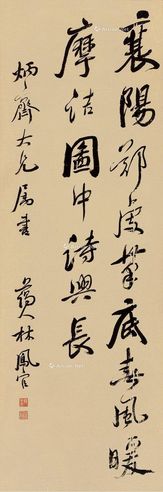 襄陽鄭虔筆底春風暖
摩詰圖中詩興長
炳齊大兄属書
藹人林鳳官